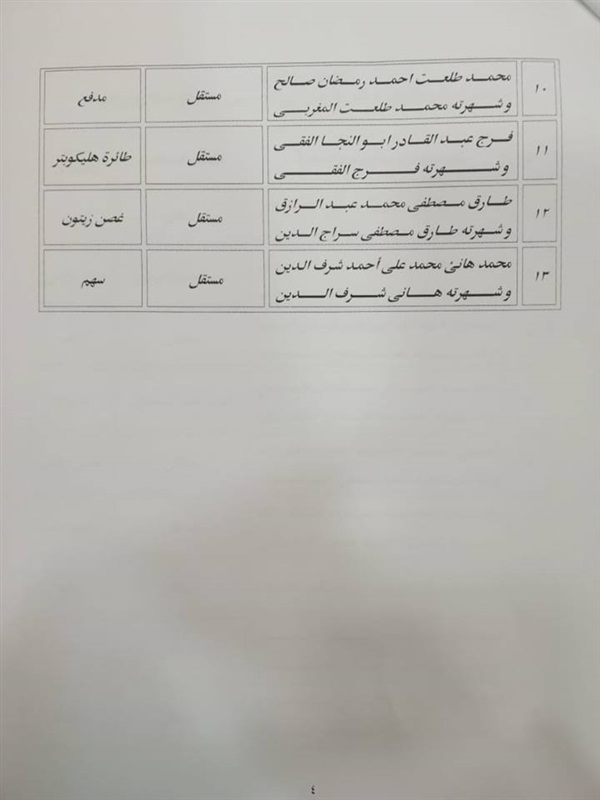 ١٠ محمد طلعت احمد رمضان صالح مستقل مدفع
وشهرته محمد طلعت المغربى
١١ فرج عبد القادر ابو النجا الفقى مستقل طائرة هليكوبتر
وشهرته فرج الفقى
١٢ طارق مصطفى محمد عبد الرازق مستقل غصن زيتون
وشهرته طارق مصطفى سراج الدين
١٣ محمد هانئ محمد على أحمد شرف الدين مستقل سهم
وشهرته هانى شرف الدين
٤